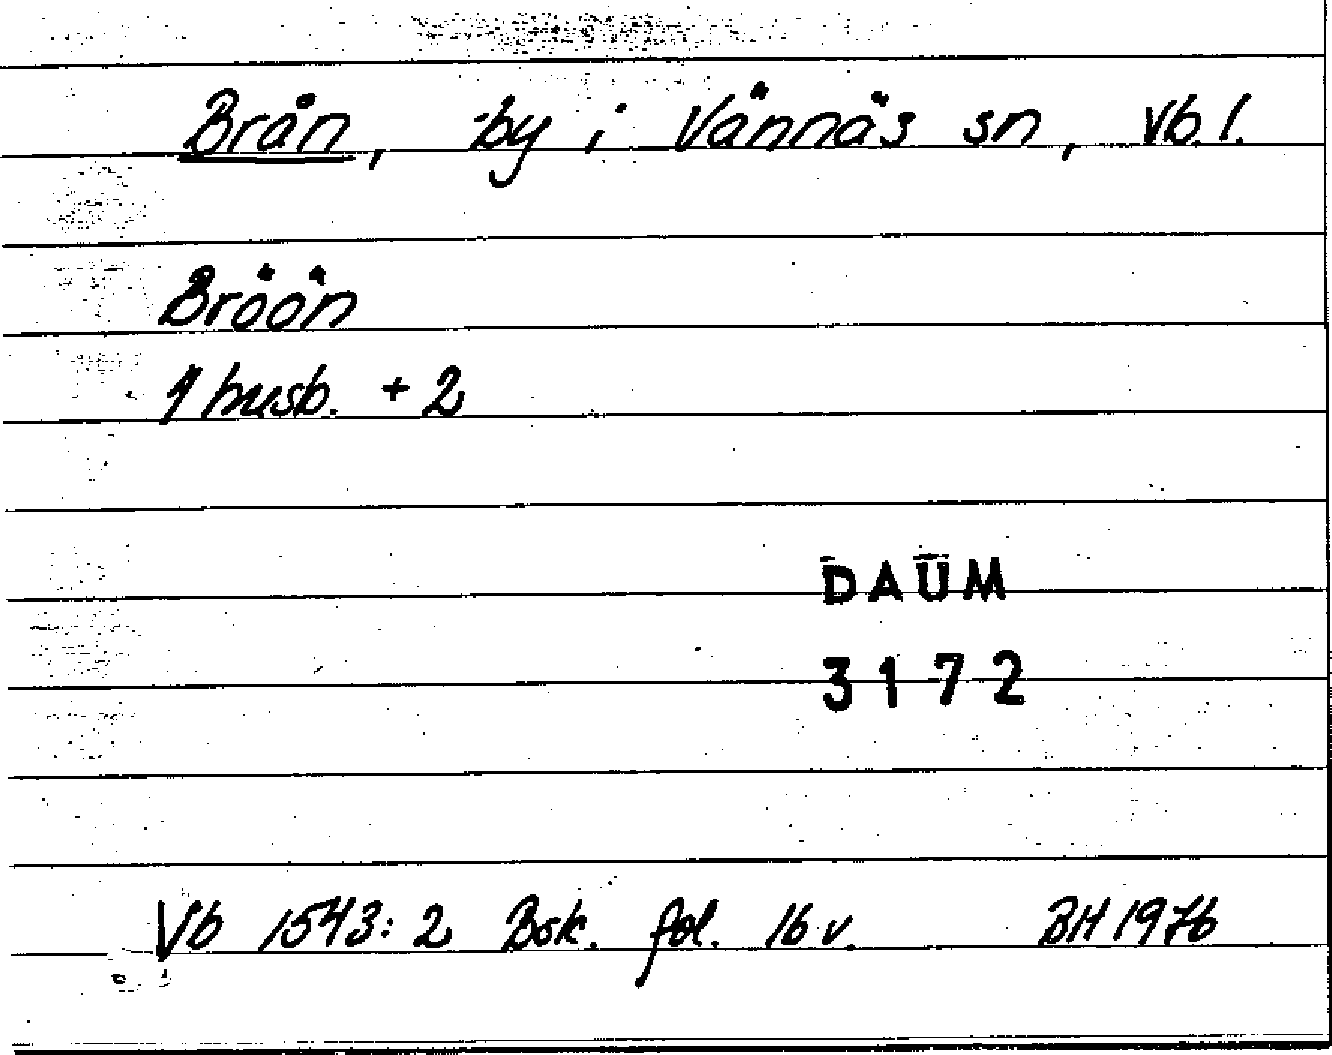 Brån, by i Vännäs sn, Vb. l.
Bröön
1 husb. + 2
DAUM
3172
Vb 1543:2 Bsk. fol. 16 v. BH 1976